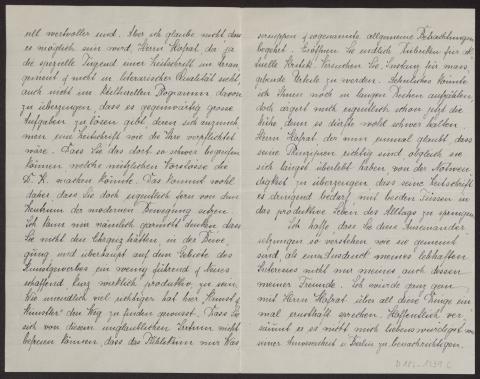 ell wertvoller sind. Aber ich glaube nicht dass
es möglich sein wird, Herrn Hofrat, der ja
die spezielle Tugend einer Zeitschrift im Arran
gement & nicht in literarischer Qualität sieht,
auch nicht im kulturellen Programm davon
zu überzeugen, dass es gegenwärtig grosse
Aufgaben zu lösen gibt, denen sich anzuneh
men eine Zeitschrift wie die Ihre verpflichtet
wäre. Dass Sie das dort so schwer begreifen
können welche nützlichen Vorstösse die
D. K. machen könnte. Das kommt wohl
daher dass Sie doch eigentlich fern von dem
Zentrum der modernen Bewegung stehen.
Ich kann mir nämlich garnicht denken dass
Sie nicht den Ehrgeiz hätten, in der Bewe
gung und überhaupt auf dem Gebiete des
Kunstgewerbes ein wenig führend & Neues
schaffend kurz wirklich produktiv zu sein.
Wie unendlich viel richtiger hat hier „Kunst &
Künstler" den Weg zu finden gewusst. Dass Sie
sich von diesem unglücklichen Irrtum nicht
befreien können, dass das Publikum nur
und sogenannte allgemeine Betrachtungen
begehrt. Eröffnen Sie endlich Rubriken für ak
tuelle Kritik. Versuchen Sie, Syndikus für mass
gebende Urteile zu werden. Aehnliches könnte
ich Ihnen noch in langen Reihen aufzählen,
doch ärgert mich eigentlich schon jetzt die
Mühe, denn es dürfte wohl schwer halten
Herrn Hofrat, der nun einmal glaubt dass
seine Prinzipien richtig sind obgleich sie
sich längst überlebt haben, von der Notwen
digkeit zu überzeugen dass seine Zeitschrift
es dringend bedarf, mit beiden Füssen in
das produktive Leben des Alltags zu springen.
Ich hoffe, dass Sie diese Auseinander
setzungen so verstehen wie sie gemeint
sind, als ein Ausdruck meines lebhaften
Interesses nicht nur meines auch dessen
meiner Freunde. Ich würde ganz gern
mit Herrn Hofrat über all diese Dinge ein
mal ernsthaft sprechen. Hoffentlich ver
säumt er es nicht mich liebenswürdigst von
seiner Anwesenheit in Berlin zu benachrichtigen.